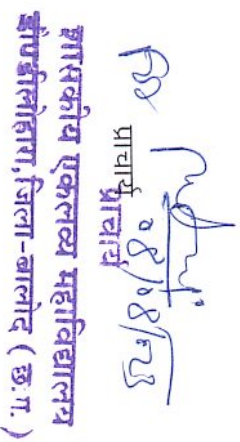 प्राचार्य
प्राचार्य
शासकीय एकलव्य महाविद्यालय
डौण्डीलोहारा, जिला-बालोद (छ.ग.)